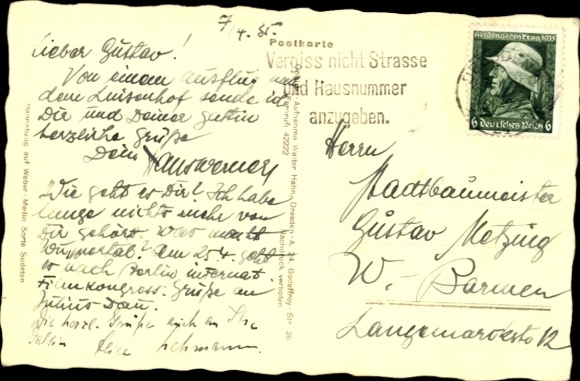 7/4. 35.
Lieber Gustav!
Von einem Ausflug nach
dem Luisenhof sende ich
Dir und Deiner Gattin
herzliche Grüße
Dein Hanswerner
Wie geht es Dir? Ich habe
lange nichts mehr von
Dir gehört. Was macht
Wuppertal? Am 25.4. geht
es nach Berlin internat.
Filmkongress. Grüße an
Julius Dau.
Die herzl. Grüße auch an Ihre
Gattin
Lehmann.
Postkarte
Vergiss nicht Strasse
und Hausnummer
anzugeben.
Heldengedenktag 1935
6 Deutsches Reich 6
Herrn
Stadtbaumeister
Gustav Metzing
W.-Barmen
Langemarckstr 12
Aufnahme Walter Hahn, Dresden-A. 24, Godeffroy-Str. 26
42222
Nachdruck verboten
auf Weber Martin Sorte Sudeten